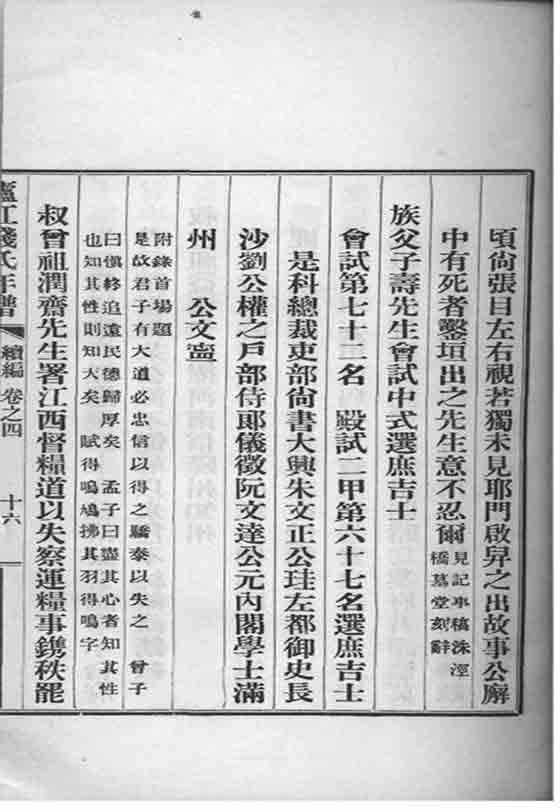 頃尙張目左右視若獨未見耶門啟舁之出故事公廨
中有死者鑿垣出之先生意不忍爾
見記事稿洙涇
橋墓堂刻辭
族父子壽先生會試中式選庶吉士
會試第七十二名　殿試二甲第六十七名選庶吉士
是科總裁吏部尙書大興朱文正公珪左都御史長
沙劉公權之戶部侍郎儀徵阮文達公元內閣學士滿
州　公文寧
附錄首場題
是故君子有大道必忠信以得之驕泰以失之　曾子
曰愼終追遠民德歸厚矣　孟子曰盡其心者知其性
也知其性則知天矣　賦得鳴鳩拂其羽得鳴字
叔曾祖潤齋先生署江西督糧道以失察運糧事鐫秩罷
廬江錢氏年譜　續編　卷之四　十六